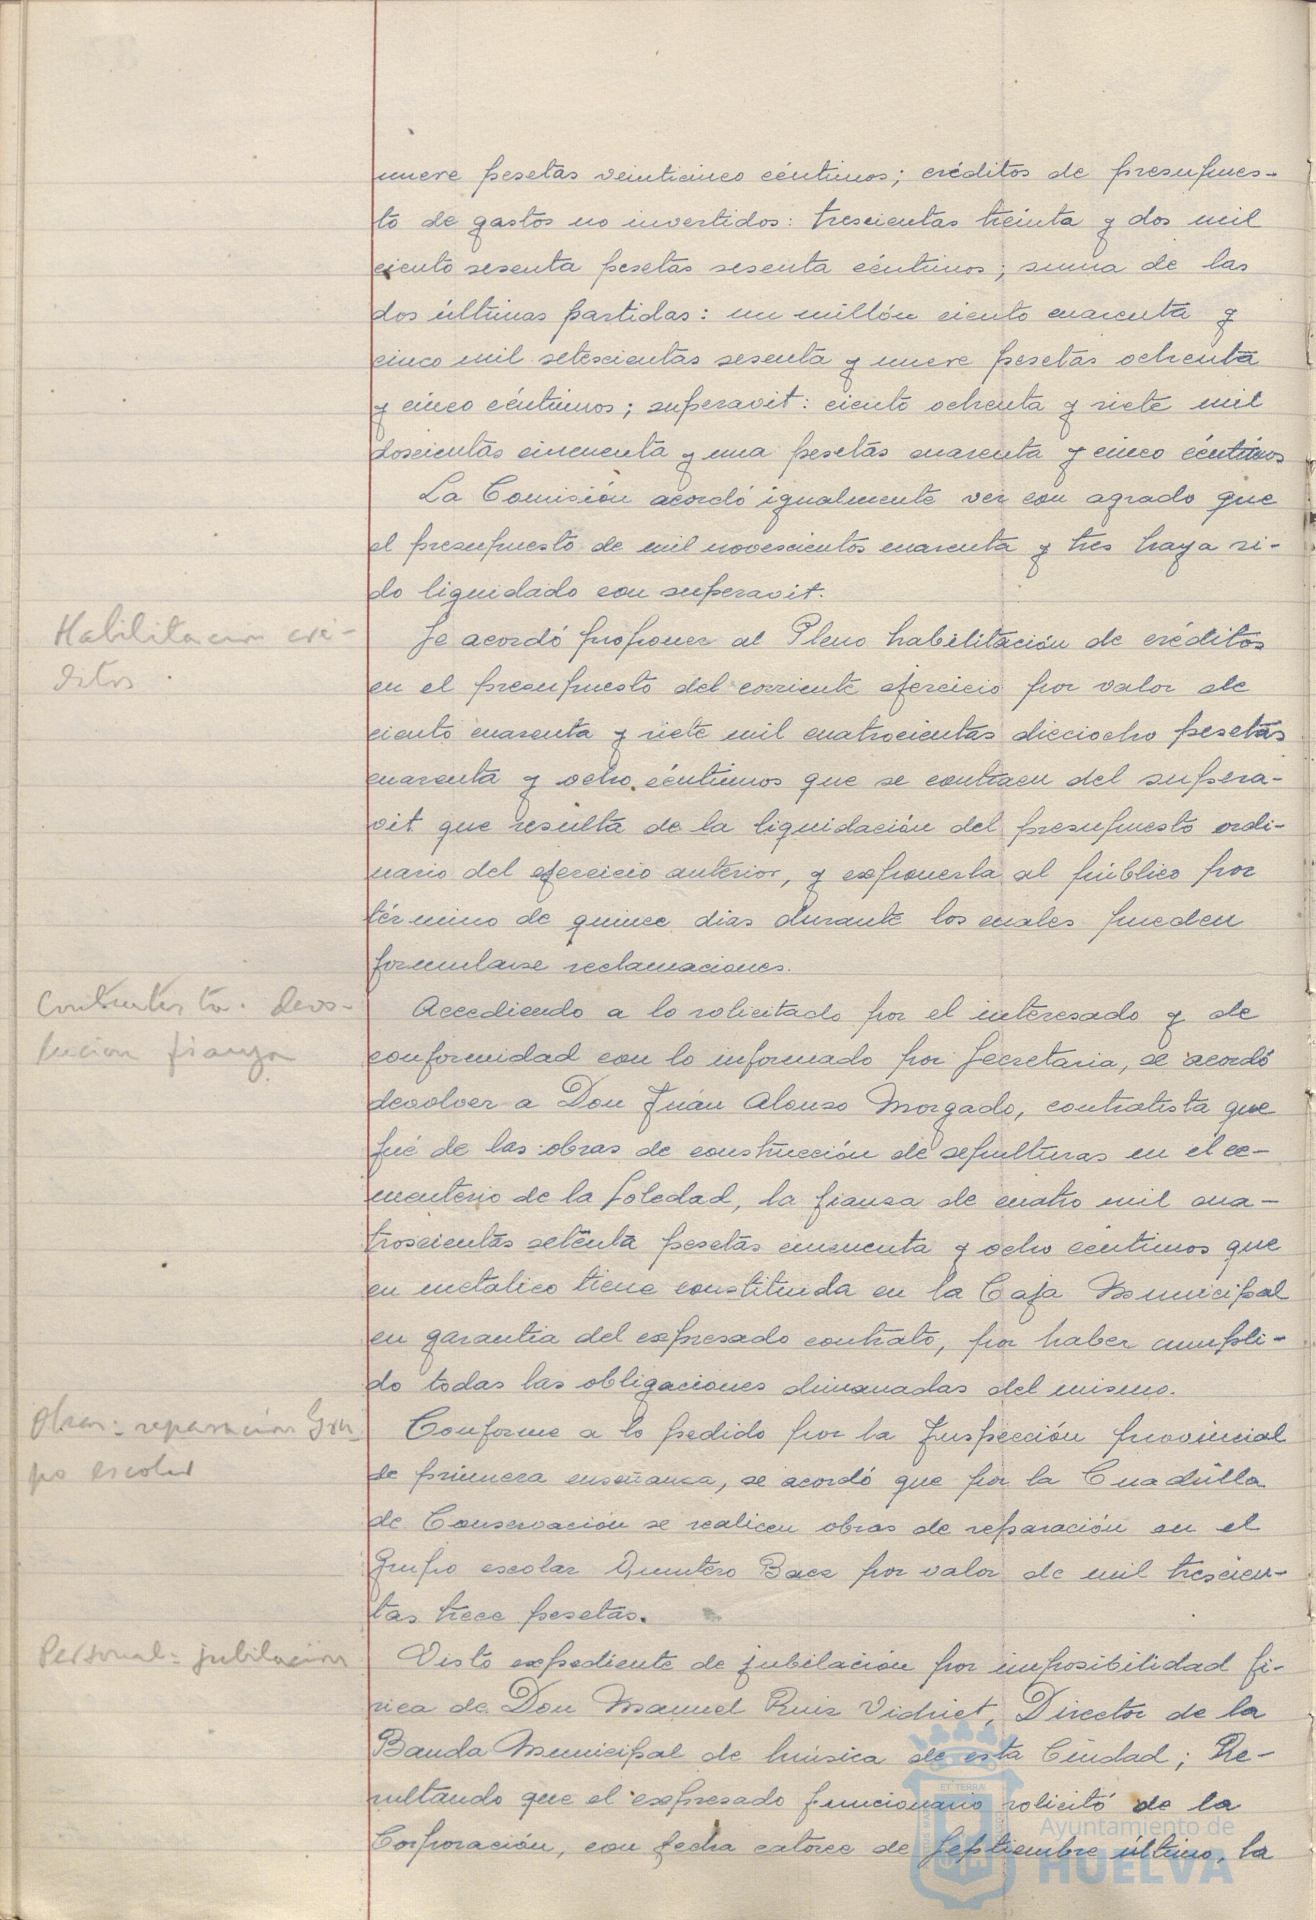 nueve pesetas veinticinco céntimos; créditos de presupues-
to de gastos no invertidos: trescientas treinta y dos mil
ciento sesenta pesetas sesenta céntimos; suma de las
dos últimas partidas: un millón ciento cuarenta y
cinco mil setescientas sesenta y nueve pesetas ochenta
y cinco céntimos; superavit: ciento ochenta y siete mil
doscientas cincuenta y una pesetas cuarenta y cinco céntimos
La Comisión acordó igualmente ver con agrado que
el presupuesto de mil novescientos cuarenta y tres haya si-
do liquidado con superavit.
Habilitacion cré-
ditos
Se acordó proponer al Pleno habilitación de créditos
en el presupuesto del corriente ejercicio por valor de
ciento cuarenta y siete mil cuatrocientas dieciocho pesetas
cuarenta y ocho céntimos que se contraen del supera-
vit que resulta de la liquidación del presupuesto ordi-
nario del ejercicio anterior, y exponerla al público por
término de quince dias durante los cuales pueden
formularse reclamaciones.
Contratista. devo-
lucion fianza
Accediendo a lo solicitado por el interesado y de
conformidad con lo informado por Secretaria, se acordó
devolver a Don Juan Alonso Morgado, contratista que
fué de las obras de construcción de sepulturas en el ce-
menterio de la Soledad, la fianza de cuatro mil cua-
troscientas setenta pesetas cincuenta y ocho centimos que
en metalico tiene constituida en la Caja Municipal
en garantia del expresado contrato, por haber cumpli-
do todas las obligaciones dimanadas del mismo.
Obras = reparacion Gru-
po escolar
Conforme a lo pedido por la Inspección provincial
de primera enseñanza, se acordó que por la Cuadrilla
de Conservación se realicen obras de reparación en el
Grupo escolar Quintero Baez por valor de mil trescien-
tas trece pesetas.
Personal = jubilacion
Visto expediente de jubilación por imposibilidad fi-
sica de Don Manuel Ruiz Vidriet, Director de la
Banda Municipal de música de esta Ciudad; Re-
sultando que el expresado funcionario solicitó de la
Corporación, con fecha catorce de Septiembre último, la
ET TERRA
Ayuntamiento de
HUELVA